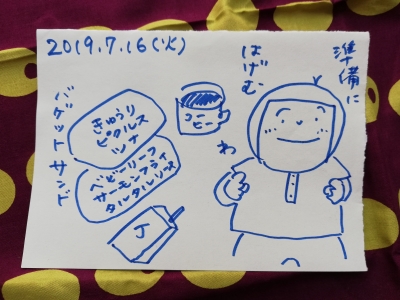 2019.7.16(火)
準備に
はげむ
わ
コー
ヒー
バゲットサンド
きゅうり
ピクルス
ツナ
ベビーリーフ
サーモンフライ
タルタルソース
J